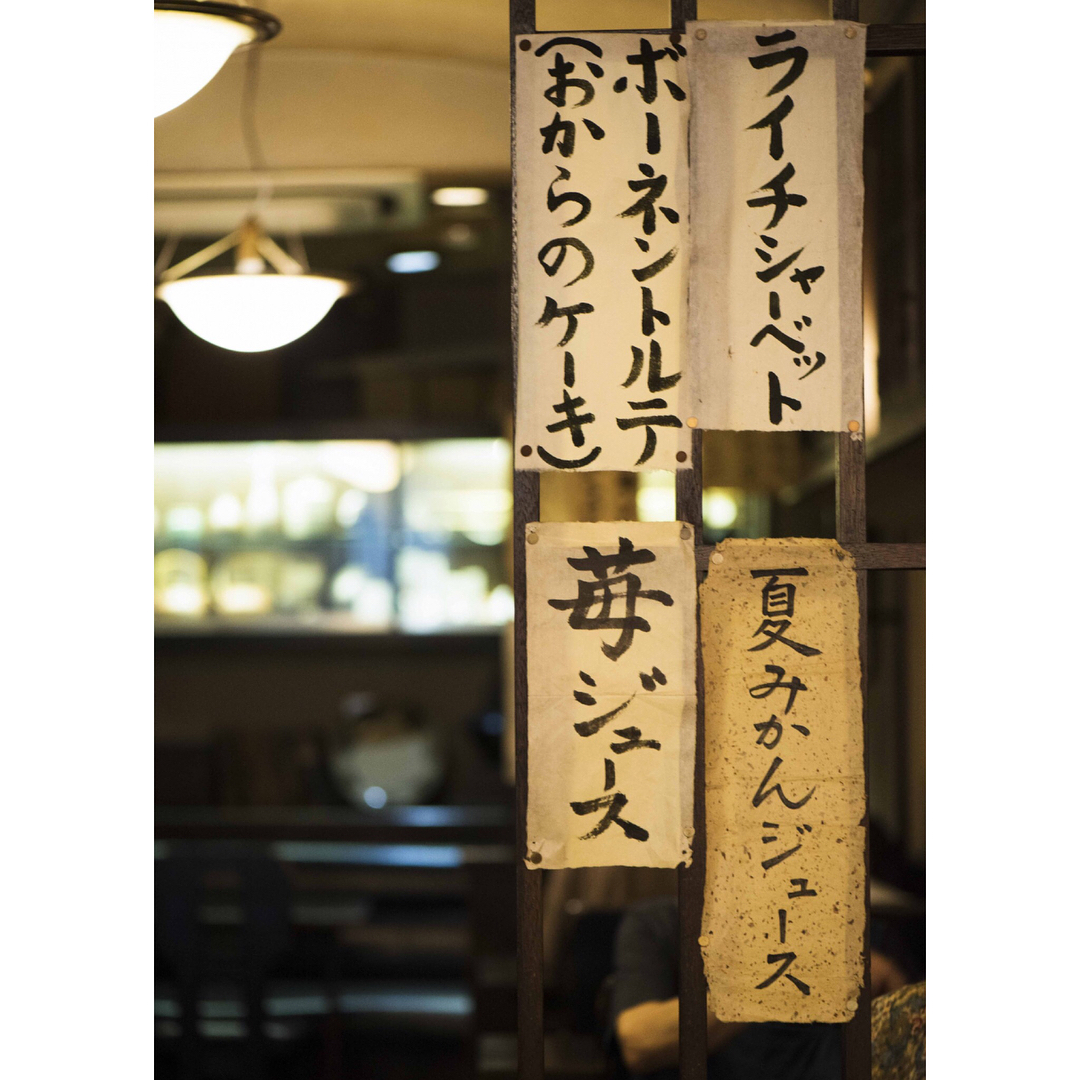 ライチシャーベット
ボーネントルテ
(おからのケーキ)
夏みかんジュース
苺ジュース